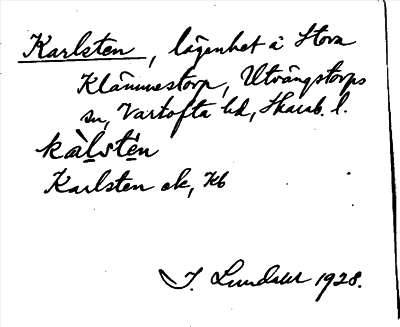 Karlsten, lägenhet å Stora
Klämmestorp, Utvängstorps
sn, Vartofta hd, Skarab. l.
kàlstén
Karlsten ek, Kb
J. Lundahl 1928.